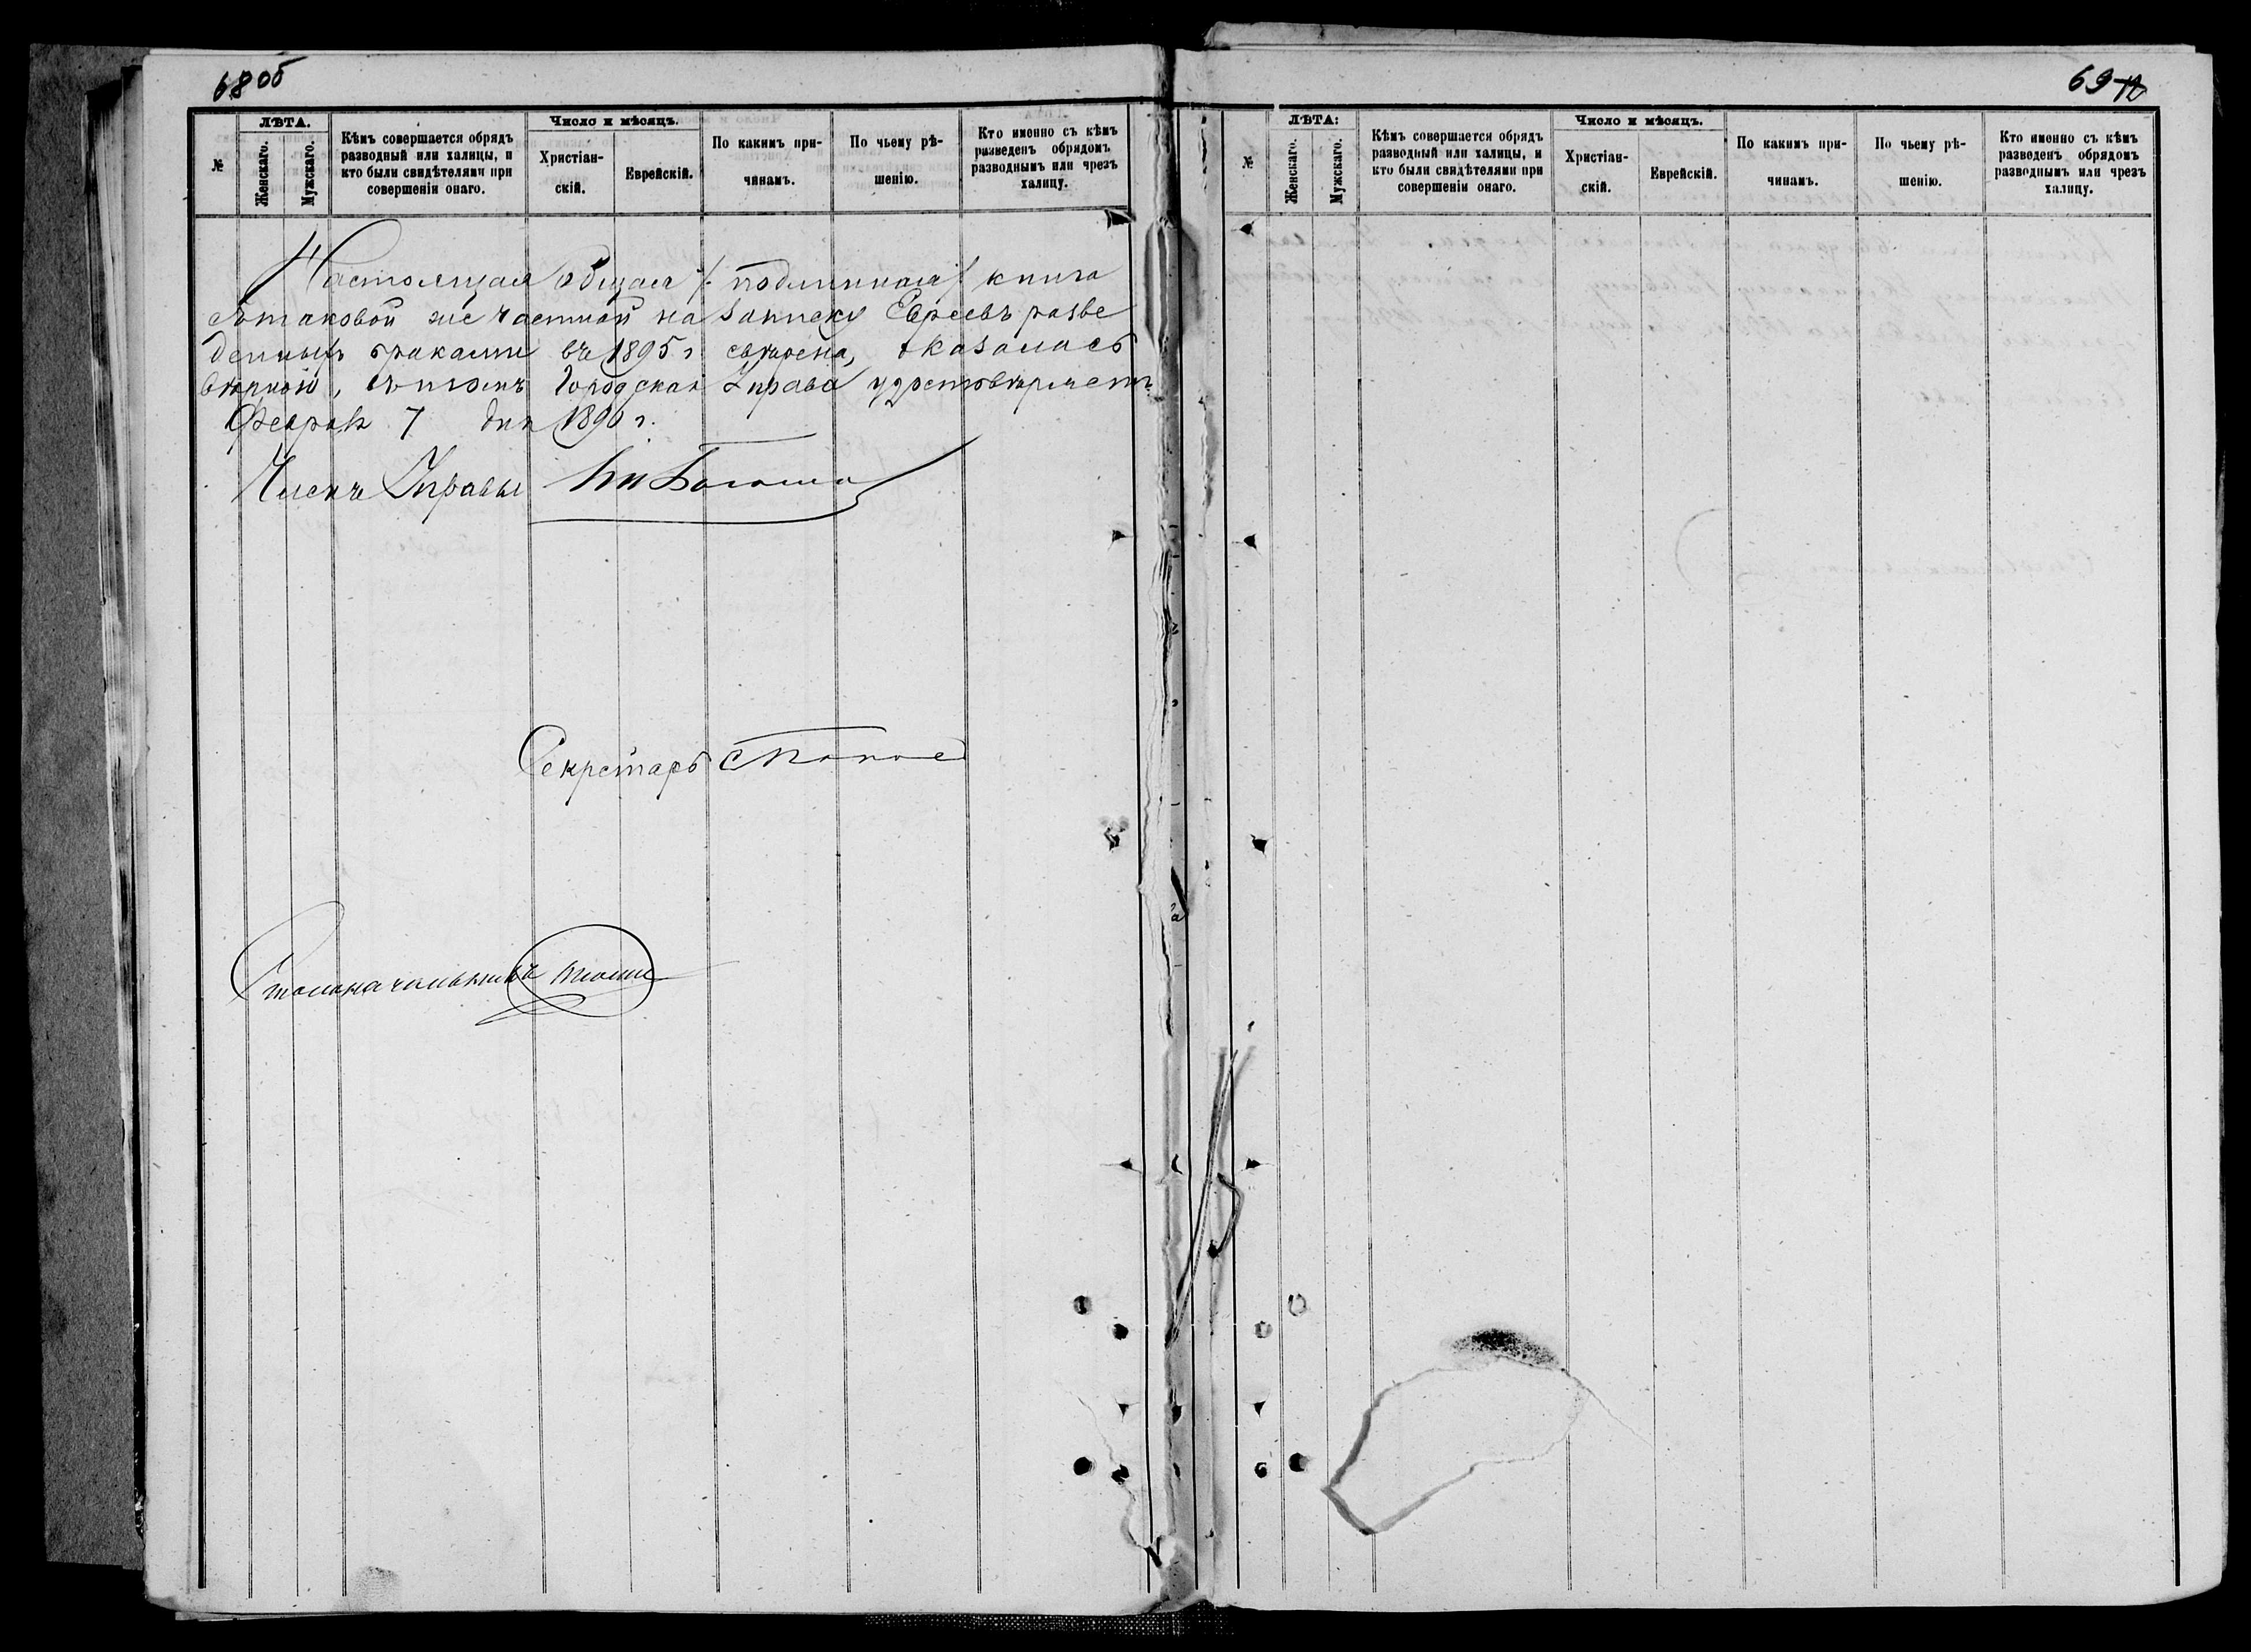 68 об
ЛѢТА.
Число и мѣсяцъ.
№
Женскаго.
Мужскаго.
Кѣмъ совершается обрядъ
разводный или халицы, и
кто были свидѣтелями при
совершеніи онаго.
Христіан-
скій.
Еврейскій.
По какимъ при-
чинамъ.
По чьему рѣ-
шенію.
Кто именно съ кѣмъ
разведенъ обрядомъ
разводнымъ или чрезъ
халицу.
Настоящая общая /: подлинная/ книга
съ таковой же частной на записку Евреевъ разве
денныхъ браками въ 1895 г. свѣрена, оказалась
вѣрной, въ чемъ Городская Управа удостовѣряетъ
Февраля 7 дня 1896 г.
Членъ Управы
Секретарь
Столоначальникъ
69
ЛѢТА:
Число и мѣсяцъ.
№
Женскаго.
Мужскаго.
Кѣмъ совершается обрядъ
разводный или халицы, и
кто были свидѣтелями при
совершеніи онаго.
Христіан-
скій.
Еврейскій.
По какимъ при-
чинамъ.
По чьему рѣ-
шенію.
Кто именно съ кѣмъ
разведенъ обрядомъ
разводнымъ или чрезъ
халицу.